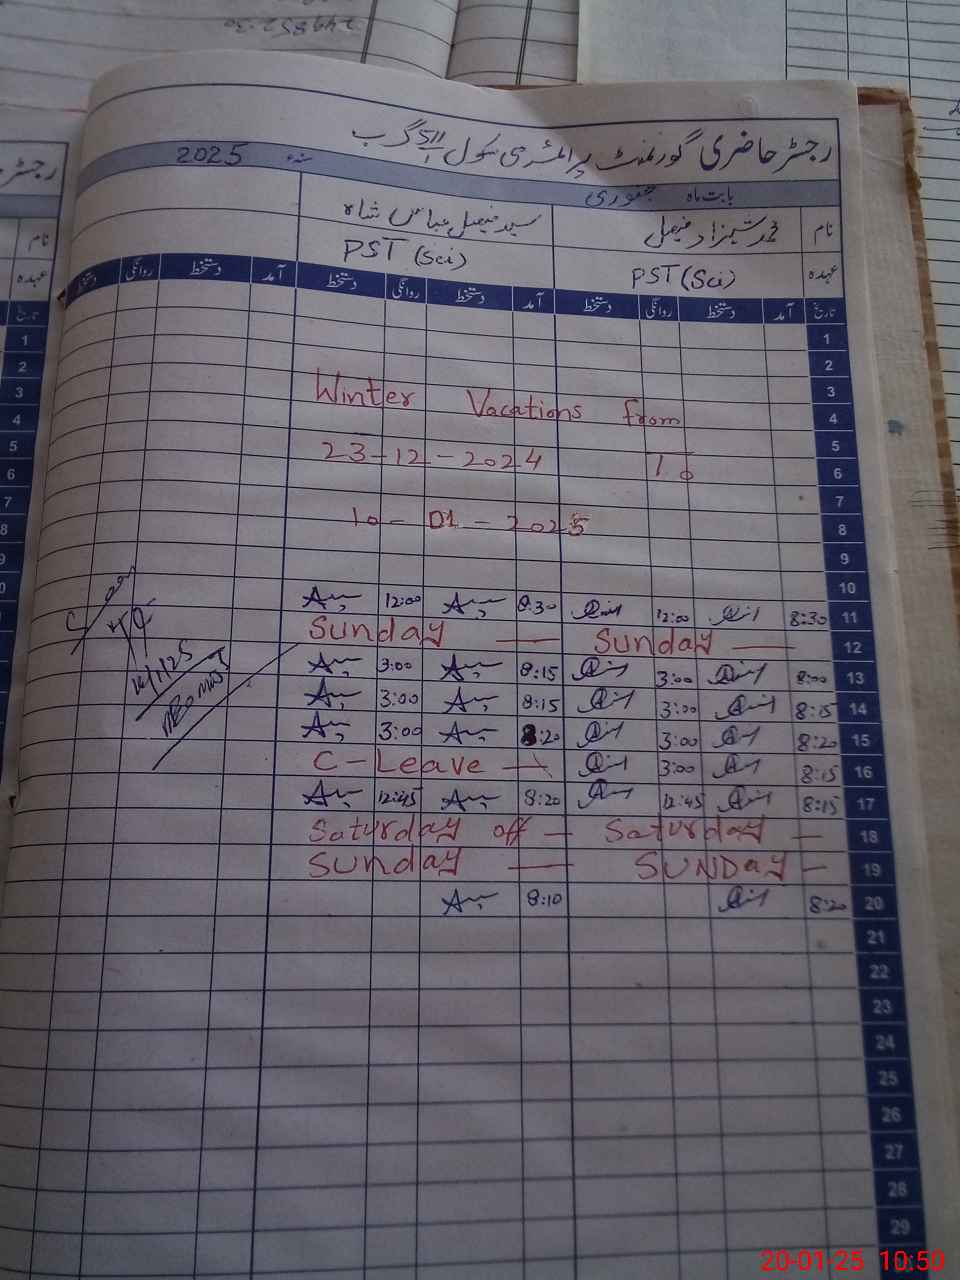 رجسٹر حاضری گورنمنٹ پرائمری سکول 511 گ ب
بابت ماہ جنوری سنہء 2025
نام محمد شہزاد فیصل سید فیصل عباس شاہ
عہدہ PST (Sci) PST (Sci)
تاریخ آمد دستخط روانگی دستخط آمد دستخط روانگی دستخط آمد دستخط روانگی دستخط
1
2
Winter Vacations from
3
4
5
23-12-2024 To
6
7
10-01-2025
8
9
10
12:00 8:30 12:00 8:30 11
Sunday — Sunday — 12
3:00 8:15 3:00 8:00 13
3:00 8:15 3:00 8:15 14
3:00 8:20 3:00 8:20 15
C-Leave — 3:00 8:15 16
12:45 8:20 12:45 8:15 17
Saturday off — Saturday — 18
Sunday — SUNDAY — 19
8:10 8:20 20
21
22
23
24
25
26
27
28
29
20-01-25 10:50